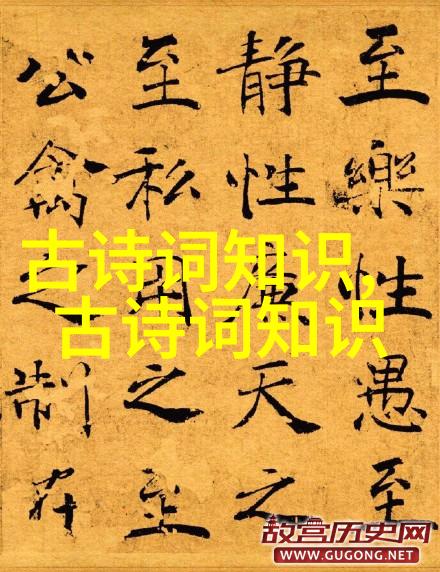 至樂性愚至
靜性廉天之
至私用之至
公禽之制在
古诗词知识,
古诗词知识
故宫历史网
WWW.GUGONG.NET